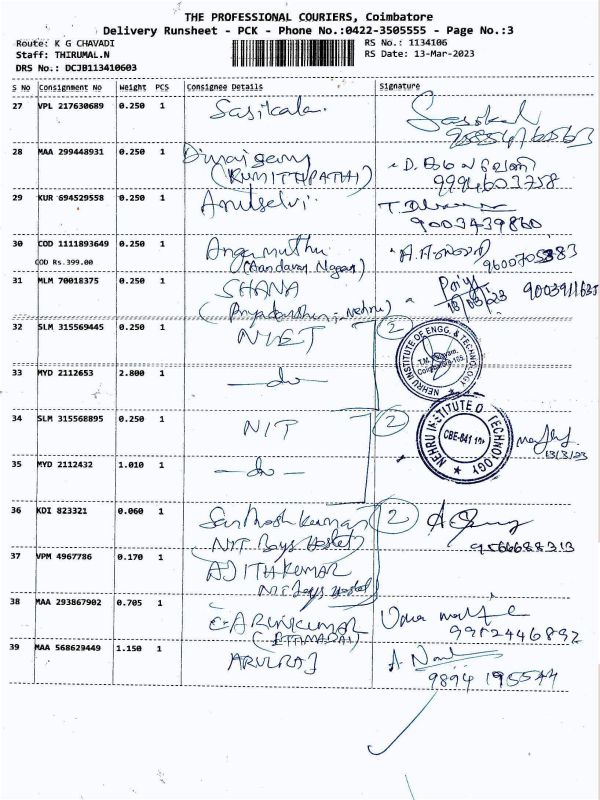 THE PROFESSIONAL COURIERS, Coimbatore
Delivery Runsheet - PCK - Phone No.:0422-3505555 - Page No.:3
Route: K G CHAVADI
RS No.: 1134106
Staff: THIRUMAL.N
RS Date: 13-Mar-2023
DRS No.: DCJB113410603
S No Consignment No Weight PCS Consignee Details Signature
27 VPL 217630689 0.250 1 Sasikala
28 MAA 299448931 0.250 1
(KUMITHPATHI) 9994603758
29 KUR 694529558 0.250 1 Arulselvi
9003439860
30 COD 1111893649 0.250 1 Angamuthu
COD Rs.399.00 (Aandavar Nagar)
31 MLM 70018375 0.250 1 SHANA 9003911635
13/03/23
32 SLM 315569445 0.250 1 NIET 2
NEHRU INSTITUTE OF ENGG. & TECHNOLOGY
T.M. Palayam,
Coimbatore-105.
33 MYD 2112653 2.800 1 -do-
34 SLM 315568895 0.250 1 NIT 2
NEHRU INSTITUTE OF TECHNOLOGY
CBE-641 105
13/3/23
35 MYD 2112432 1.010 1 -do-
36 KDI 823321 0.060 1 Santhosh kumar 2
NIT Boys Hostel 9566688313
37 VPM 4967786 0.170 1 AJITH KUMAR
NIT boys hostel
38 MAA 293867902 0.705 1 E-ARUNKUMAR
(ETTIMADAI) 9952446892
39 MAA 568629449 1.150 1 ARULRAJ
9894 195544